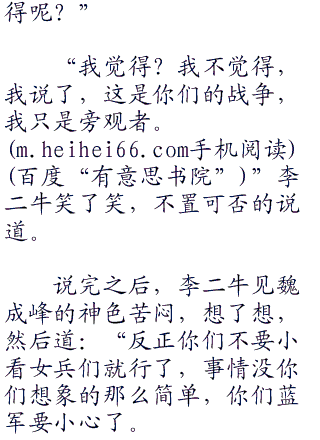 得呢？”
“我觉得？我不觉得，
我说了，这是你们的战争，
我只是旁观者。
(m.heihei66.com手机阅读)
(百度“有意思书院”)”李
二牛笑了笑，不置可否的说
道。
说完之后，李二牛见魏
成峰的神色苦闷，想了想，
然后道：“反正你们不要小
看女兵们就行了，事情没你
们想象的那么简单，你们蓝
军要小心了。